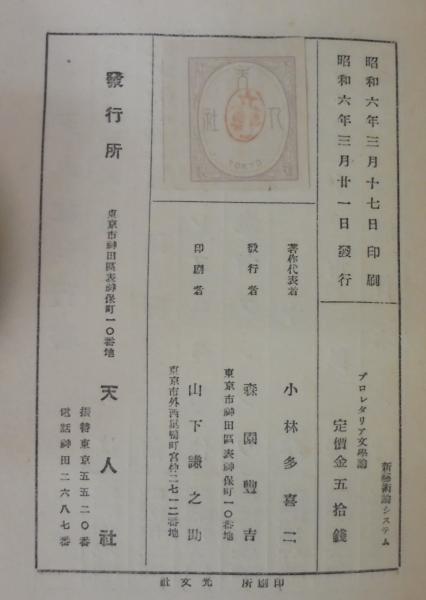 昭和六年三月十七日印刷
昭和六年三月廿一日發行
新藝術論システム
プロレタリア文學論
定價金五拾錢
著作代表者 小林多喜二
發行者 森園豐吉
東京市神田區表神保町一〇番地
印刷者 山下謙之助
東京市外西巢鴨町宮仲二七一二番地
TOKYO
發行所 天人社
東京市神田區表神保町一〇番地
振替東京五五二〇番
電話神田二六八七番
印刷所 光文社